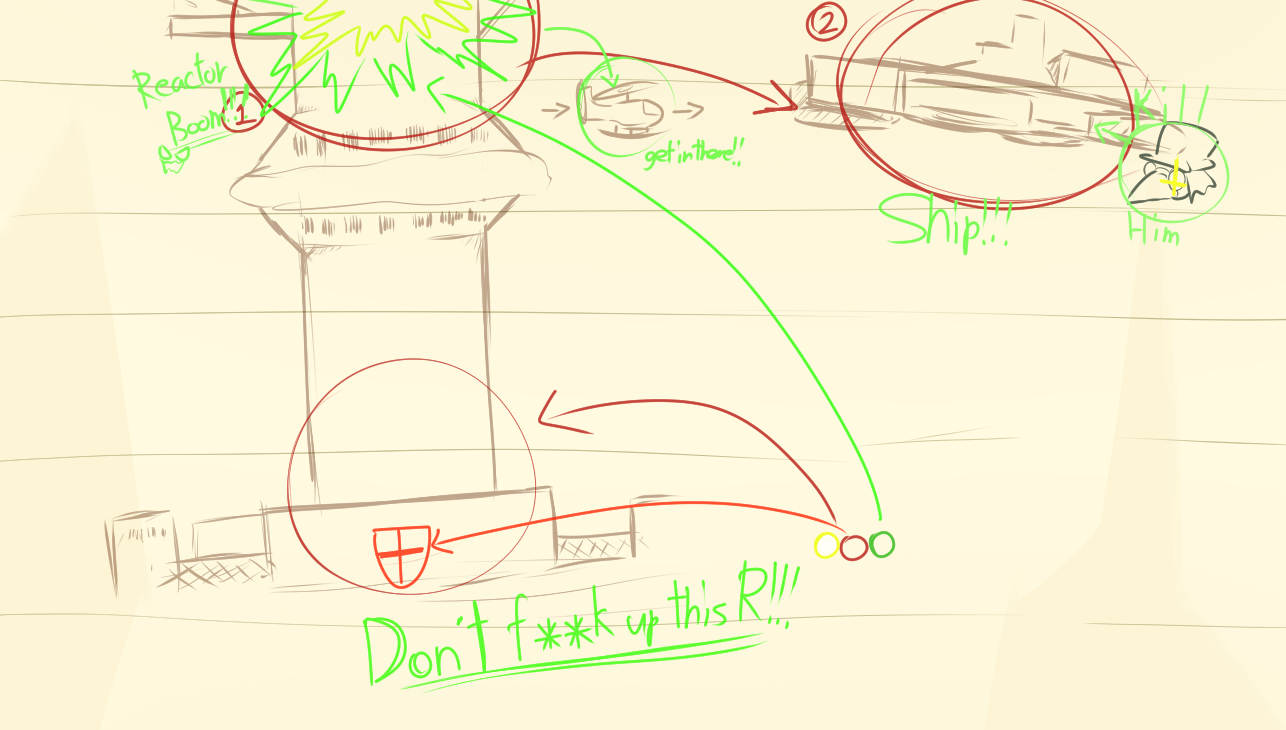 2
Reactor
Boom!!!
1
get in there!!
Kill
Ship!!!
Him
Don't f**k up this R!!!